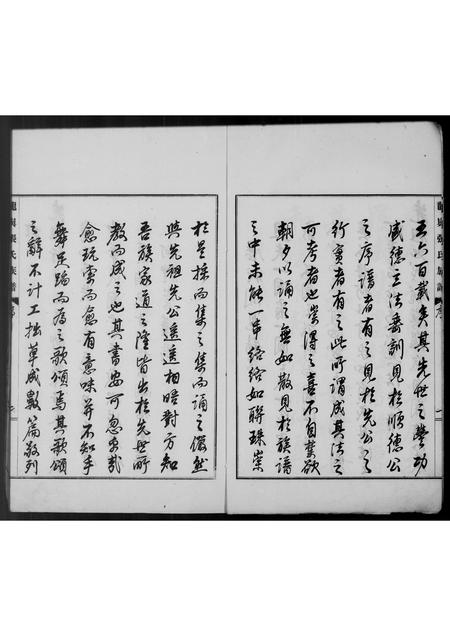 五六百載矣其先世之豐功
盛德立法垂訓見於順德公
之序譜者有之見於先公之
行實者有之此所謂咸其法之
可考者也崇得之喜不自勝欲
朝夕以誦之無如散見於族譜
之中未能一串絡絡如聯珠崇
於是採而集之集而誦之儼然
與先祖先公遙遙相晤對方知
吾族家道之隆皆出於先世所
教而成之也其書安可忽哉
愈玩索而愈有意味并不知手
舞足蹈而為之歌頌焉其歌頌
之辭不計工拙草成數篇敬列